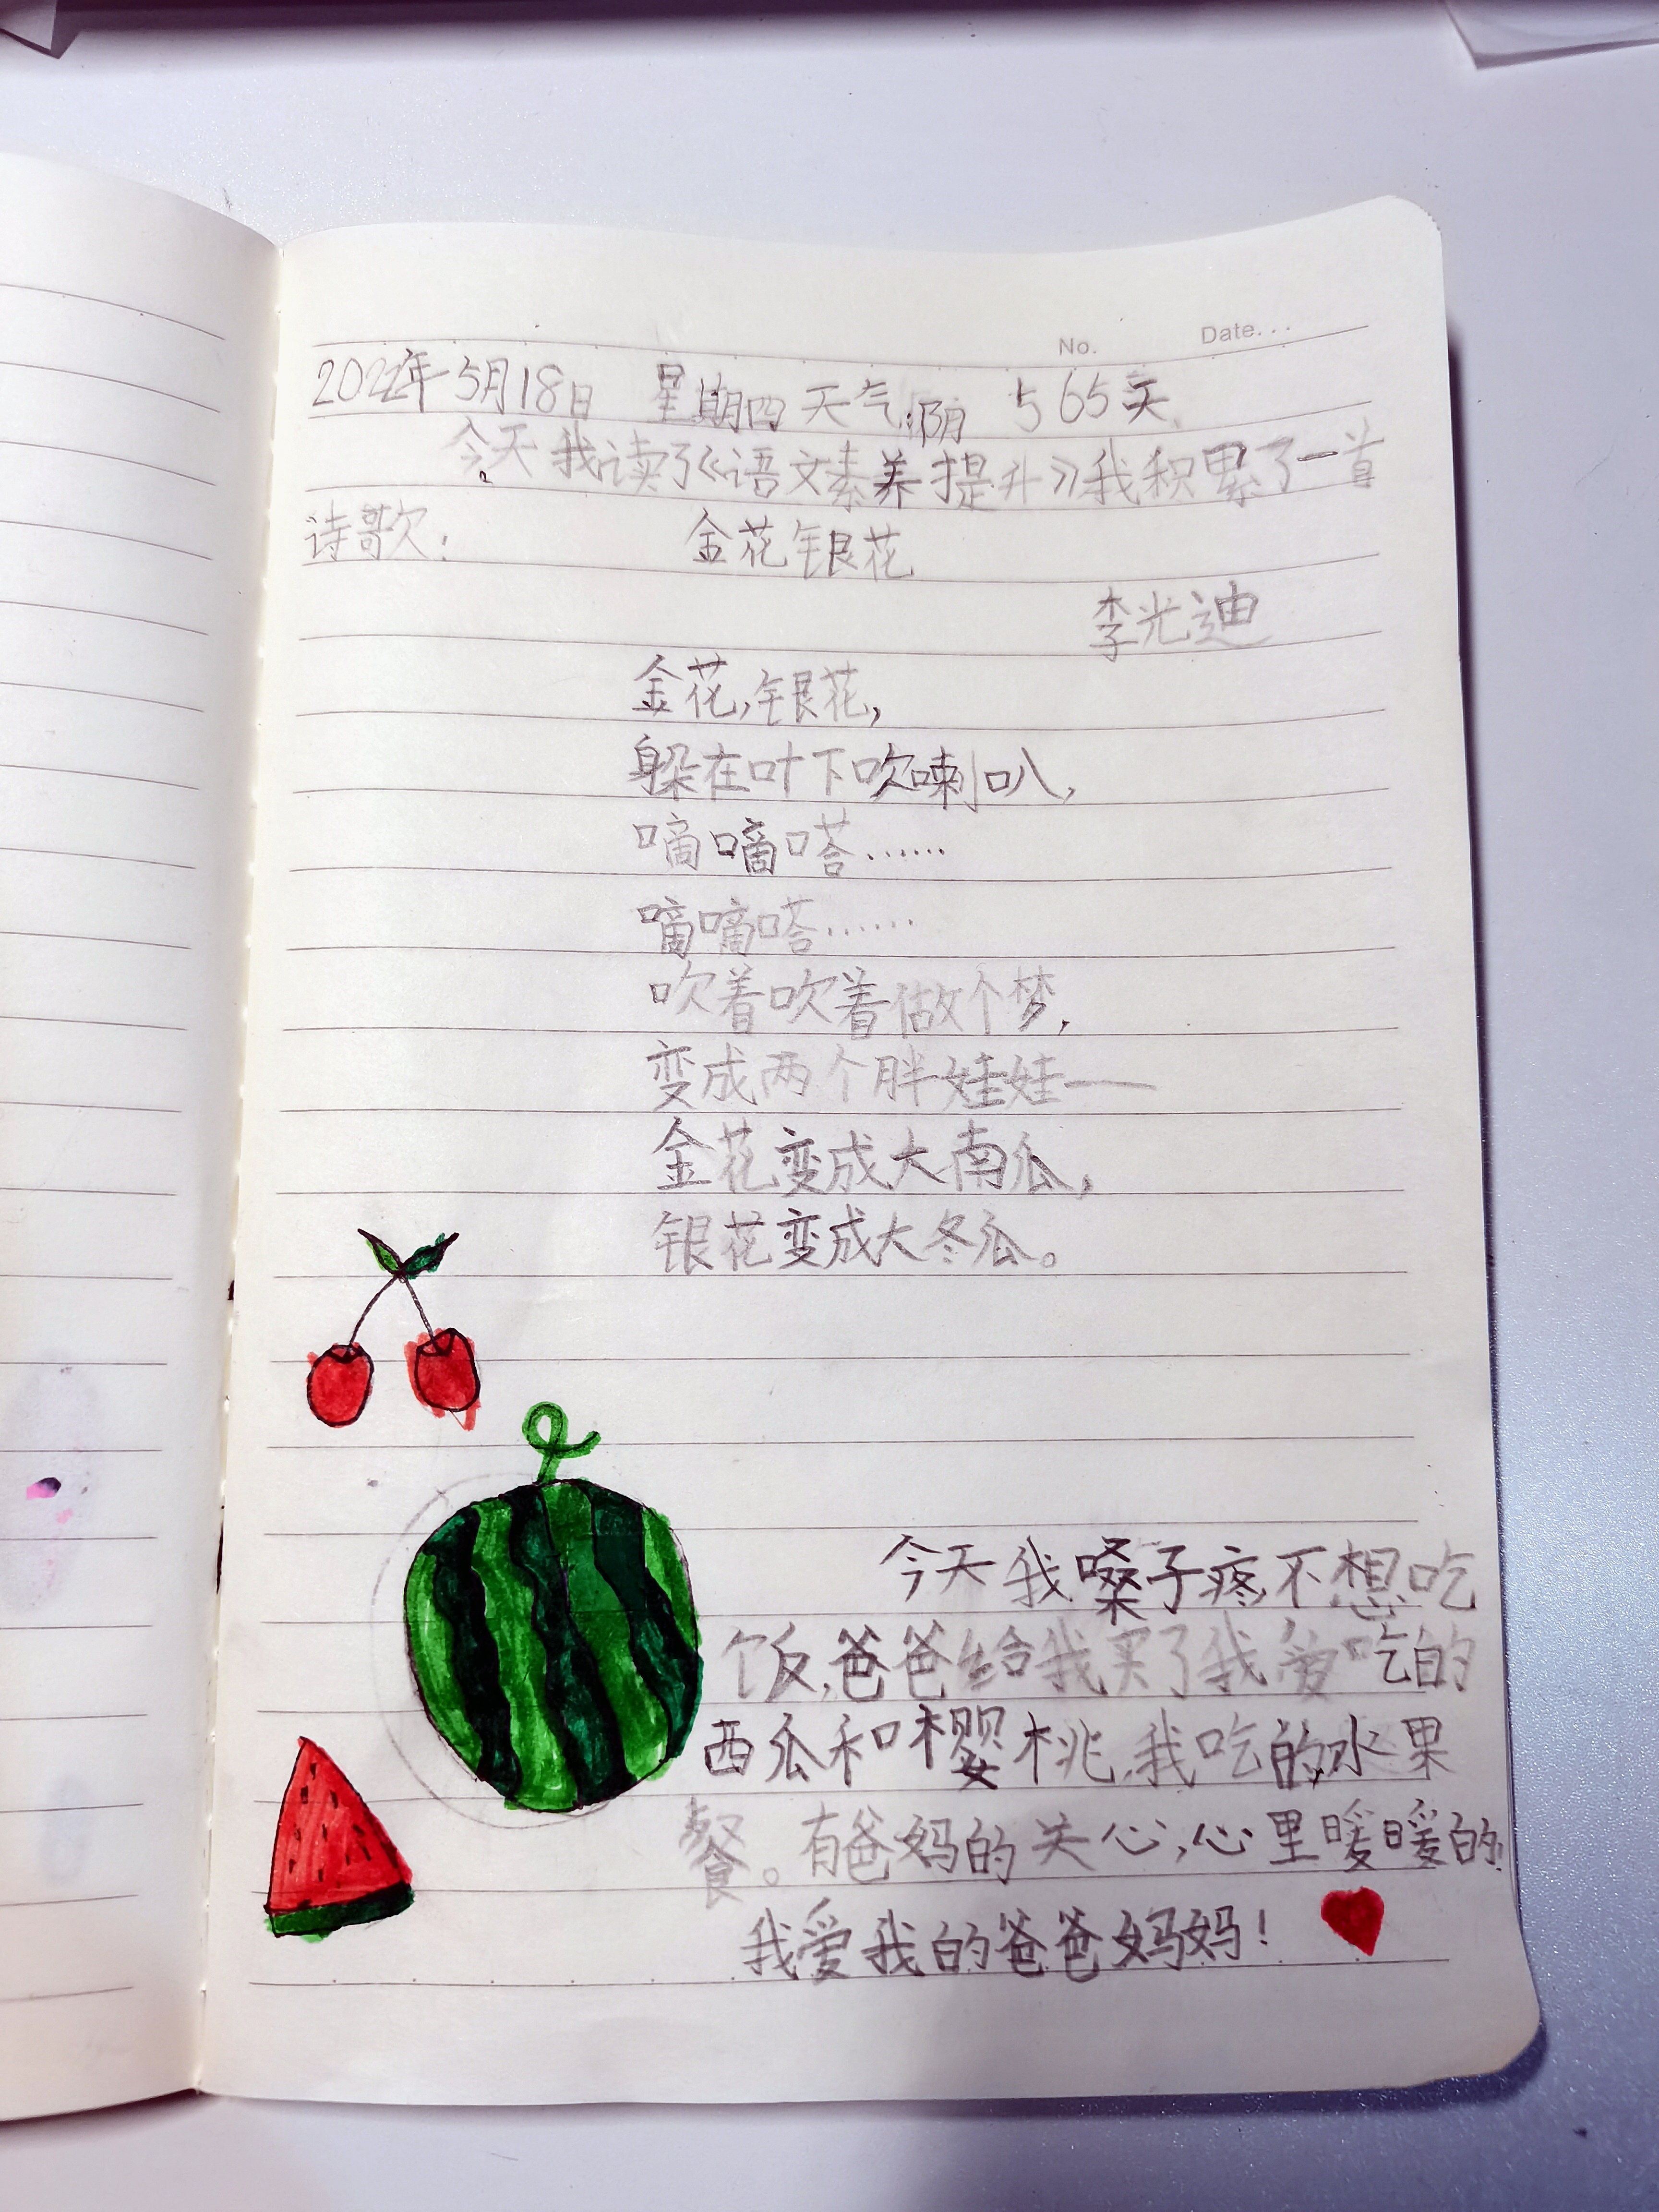 No. Date...
202年5月18日 星期四 天气:阴 565天
今天我读了《语文素养提升》我积累了一首
诗歌: 金花银花
李光迪
金花,银花,
躲在叶下吹喇叭,
嘀嘀嗒……
嘀嘀嗒……
吹着吹着做个梦,
变成两个胖娃娃——
金花变成大南瓜,
银花变成大冬瓜。
今天我嗓子疼,不想吃
饭,爸爸给我买了我爱吃的
西瓜和樱桃,我吃的水果
餐。有爸妈的关心,心里暖暖的!
我爱我的爸爸妈妈!